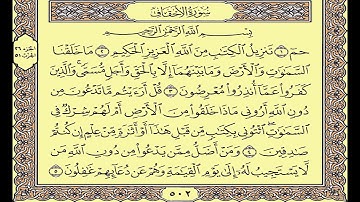 سُورَةُ الأَحْقَافِ
الجزء ٢٦
الحزب ٥١
بِسْمِ اللَّهِ الرَّحْمَٰنِ الرَّحِيمِ
حمٓ ١ تَنزِيلُ الْكِتَٰبِ مِنَ اللَّهِ الْعَزِيزِ الْحَكِيمِ ٢ مَا خَلَقْنَا
السَّمَٰوَٰتِ وَالْأَرْضَ وَمَا بَيْنَهُمَآ إِلَّا بِالْحَقِّ وَأَجَلٍ مُّسَمًّى ۚ وَالَّذِينَ
كَفَرُوا عَمَّآ أُنذِرُوا مُعْرِضُونَ ٣ قُلْ أَرَءَيْتُم مَّا تَدْعُونَ مِن
دُونِ اللَّهِ أَرُونِي مَاذَا خَلَقُوا مِنَ الْأَرْضِ أَمْ لَهُمْ شِرْكٌ فِي
السَّمَٰوَٰتِ ۖ ائْتُونِي بِكِتَٰبٍ مِّن قَبْلِ هَٰذَآ أَوْ أَثَٰرَةٍ مِّنْ عِلْمٍ إِن كُنتُمْ
صَٰدِقِينَ ٤ وَمَنْ أَضَلُّ مِمَّن يَدْعُوا مِن دُونِ اللَّهِ مَن
لَّا يَسْتَجِيبُ لَهُۥٓ إِلَىٰ يَوْمِ الْقِيَٰمَةِ وَهُمْ عَن دُعَآئِهِمْ غَٰفِلُونَ ٥
٥٠٢